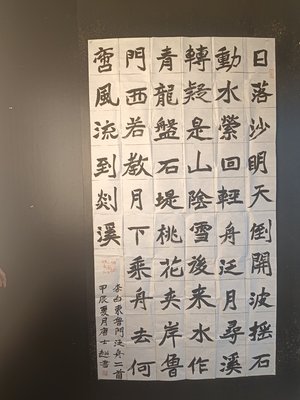 日落沙明天倒開波搖石
動水縈回輕舟泛月尋溪
轉疑是山陰雪後來水作
青龍盤石堤桃花夾岸魯
門西若教月下乘舟去何
啻風流到剡溪
李白東魯門泛舟二首
甲辰夏月唐士書